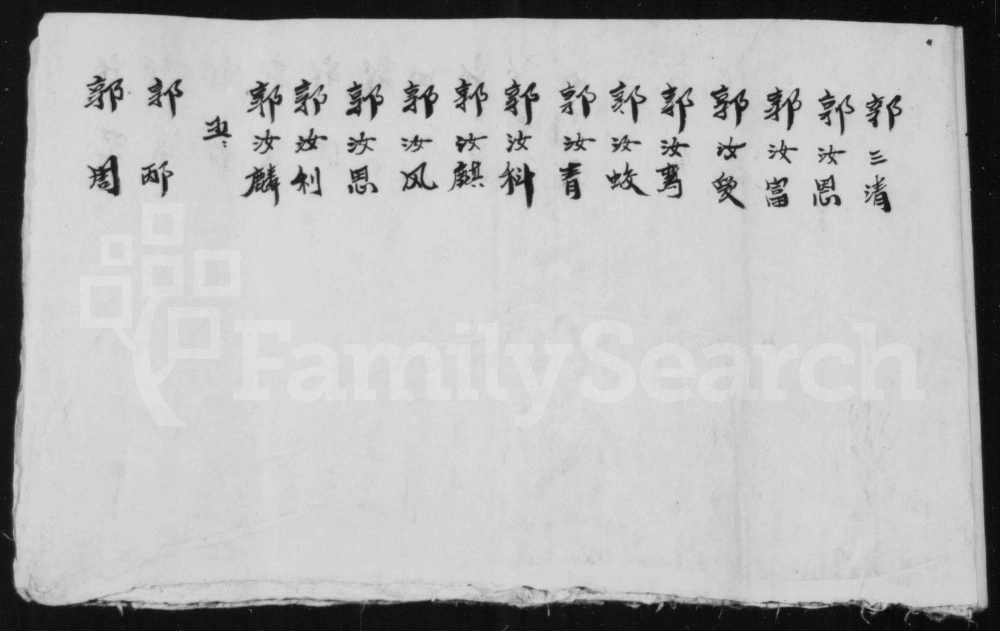 郭三清
郭汝恩
郭汝富
郭汝受
郭汝鸾
郭汝蛟
郭汝青
郭汝科
郭汝麒
郭汝风
郭汝思
郭汝利
郭汝麟
郭邴
郭周
FamilySearch